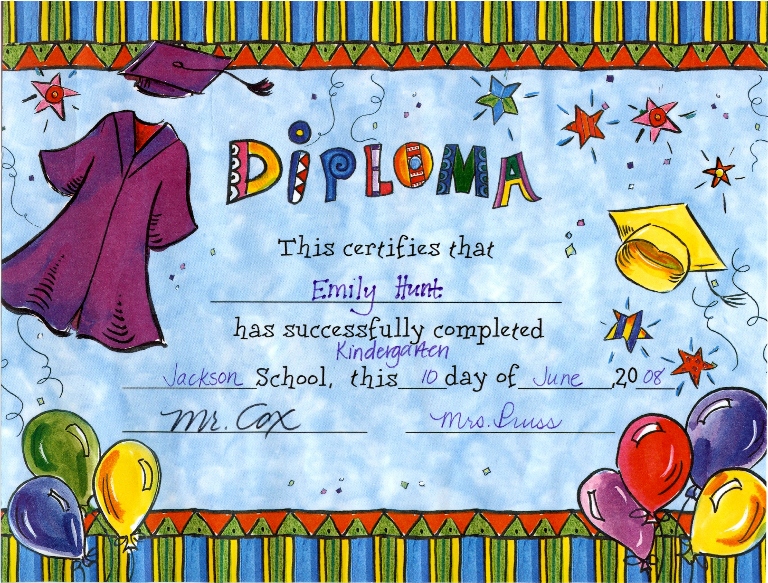 DiPLOMA
This certifies that
Emily Hunt
has successfully completed
Kindergarten
Jackson School, this 10 day of June, 2008
Mr. Cox Mrs. Pruss